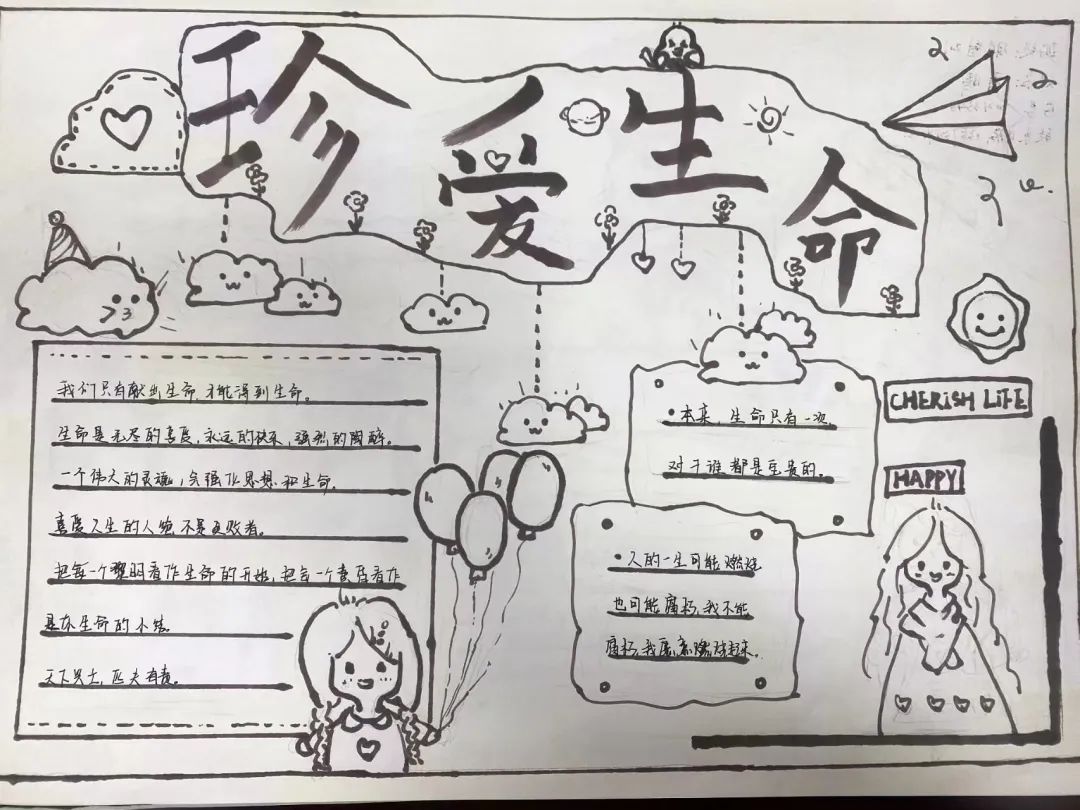 珍爱生命
我们只有献出生命,才能得到生命。
生命是无尽的喜悦,永远的快乐,强烈的陶醉。
一个伟大的灵魂,会强化思想和生命.
喜爱人生的人他不是失败者。
把每一个黎明看作生命的开始,把每一个黄昏看作
是你生命的小结.
天下兴亡,匹夫有责。
CHERISH LIFE
•本来,生命只有一次,
对于谁都是宝贵的。
HAPPY
•人的一生可能燃烧
也可能腐朽,我不能
腐朽,我愿意燃烧起来.